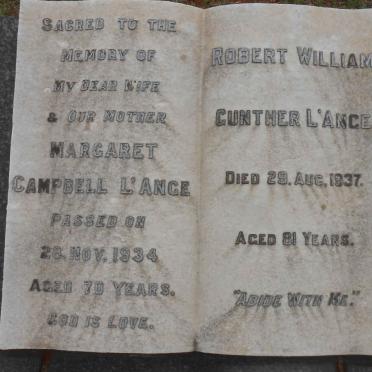 SACRED TO THE
MEMORY OF
MY DEAR WIFE
& OUR MOTHER
MARGARET
CAMPBELL L'ANGE
PASSED ON
28. NOV. 1934
AGED 70 YEARS.
GOD IS LOVE.
ROBERT WILLIAM
GUNTHER L'ANGE
DIED 29. AUG. 1937.
AGED 81 YEARS.
"ABIDE WITH ME."